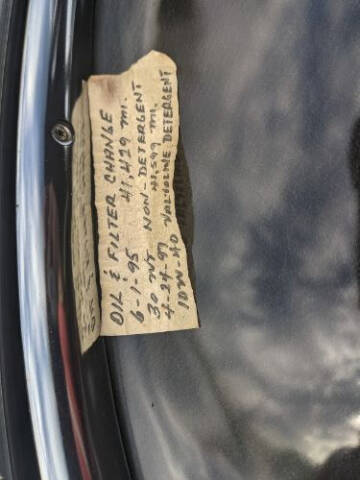 OIL & FILTER CHANGE
6-1-95 41,419 MI.
30 WT NON-DETERGENT
4-24-97 41,599 MI.
10W-40 VALVOLINE DETERGENT